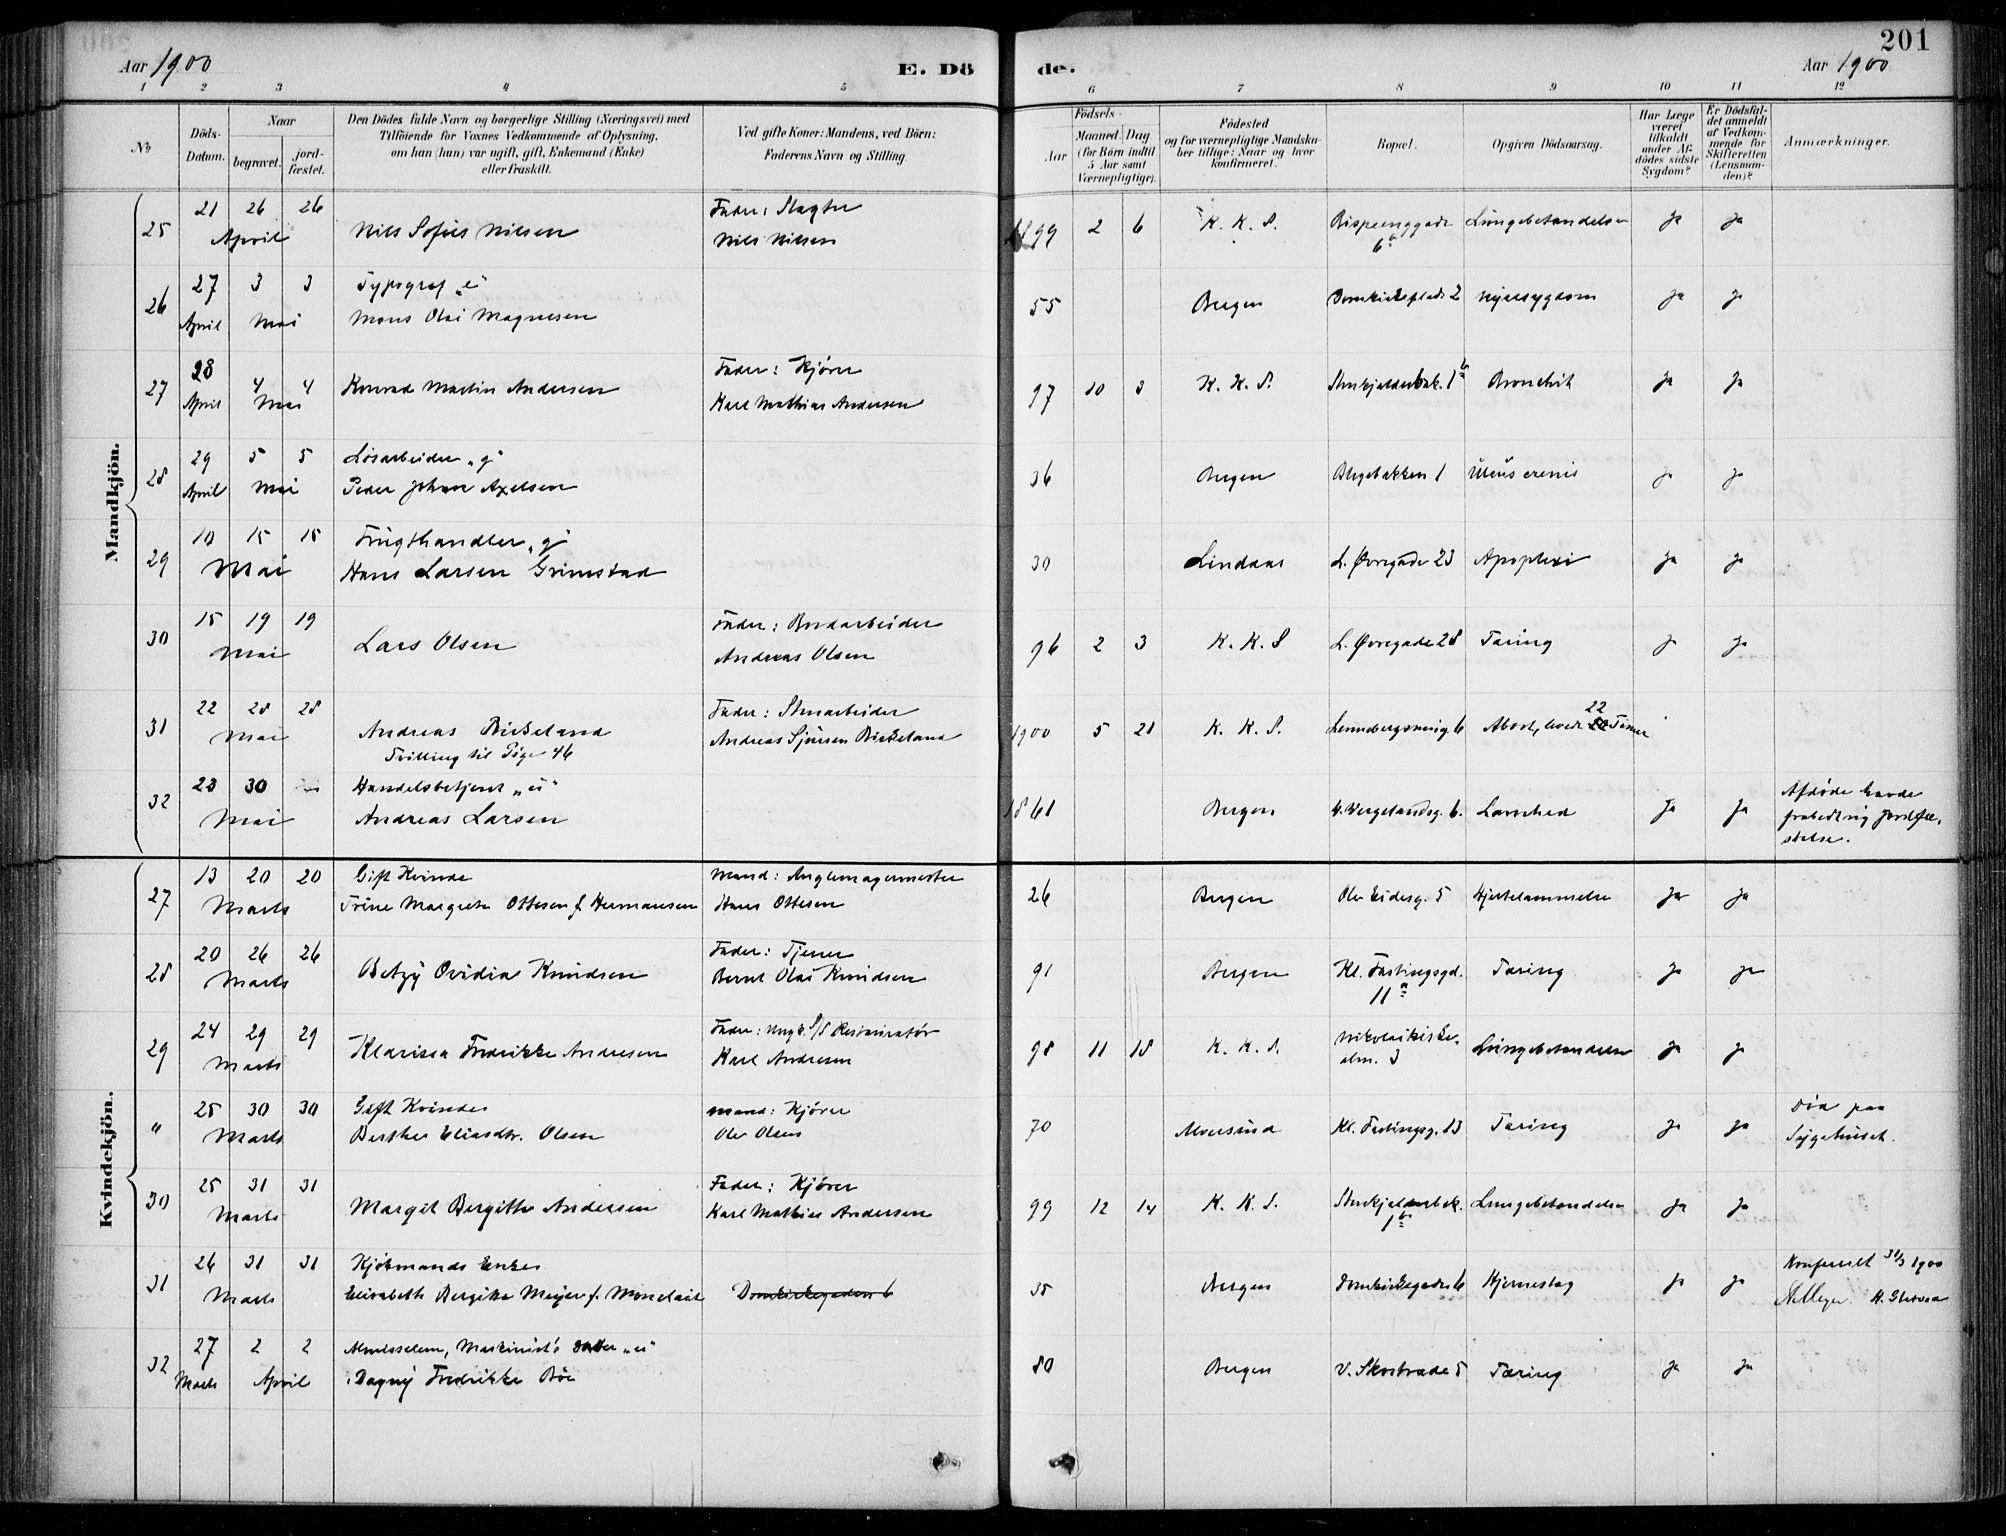 201
Aar 1900
E. Dö de.
Aar 1900
1 2 3 4 5 6 7 8 9 10 11 12
No
Döds-Datum.
Naar
begravet.
jord-fæstet.
Den Dödes fulde Navn og borgerlige Stilling (Næringsvei) med
Tilföiende for Voxnes Vedkommende af Oplysning,
om han (hun) var ugift, gift, Enkemand (Enke)
eller fraskilt.
Ved gifte Koner: Mandens, ved Börn:
Faderens Navn og Stilling.
Födsels-
Aar
Maaned Dag
(for Börn indtil
5 Aar samt
Værnepligtige).
Födested
og for værnepligtige Mandska-
ber tillige: Naar og hvor
konfirmeret.
Bopæl.
Opgiven Dödsaarsag.
Har Læge
været
tilkaldt
under Af-
dödes sidste
Sygdom?
Er Dödsfal-
det anmeldt
af Vedkom-
mende for
Skifteretten
(Lensman-
den)?
Anmærkninger.
Mandkjön.
25 21 26 26 April Nils Sofus Nilsen Fader: Slagter Nils Nilsen 1899 2 6 K. K. S. Bispeenggade 6a Lungebetændelse Ja Ja
26 27 April 3 3 Mai Typograf "e" Mons Olai Magnesen 55 Bergen Domkirkeplads 2 Nyresygdom Ja Ja
27 28 April 4 4 Mai Konrad Martin Andersen Fader: Kjører Karl Mathias Andersen 97 10 3 K. K. S. Stenkjelderbak. 1b Bronchit Ja Ja
28 29 April 5 5 Mai Løsarbeider "g" Peder Johan Axelsen 36 Bergen Blegebakken 1 Ulcus cruris Ja Ja
29 10 15 15 Mai Frugthandler "g" Hans Larsen Grimstad 30 Lindaas L. Øvregade 23 Apoplexi Ja Ja
30 15 19 19 Mai Lars Olsen Fader: Bordarbeider Andreas Olsen 96 2 3 K. K. S L. Øvregade 28 Tæring Ja Ja
31 22 28 28 Mai Andreas Birkeland Tvilling til Pige 46 Fader: Stenarbeider Andreas Sjursen Birkeland 1900 5 21 K. K. S. 6 Abort, levede 22 Timer
32 23 30 Mai Handelsbetjent "u" Andreas Larsen 1861 Bergen H. Wergelandsg. 6. Lamhed Ja Ja Afdøde havde frabedt sig Jordfæ-stelse.
Kvindekjön.
27 13 20 20 Marts Gift Kvinde Trine Margrete Ottesen f. Hermansen Mand: Anglemagermester Hans Ottesen 26 Bergen Ole Eidesg. 5 Hjertelammelse Ja Ja
28 20 26 26 Marts Betzy Ovidia Knudsen Fader: Tjener Bernt Olai Knudsen 91 Bergen Kl. Fastingsgd. 11a Tæring Ja Ja
29 24 29 29 Marts Klarissa Fredrikke Andresen Fader: S/S Restauratør Karl Andresen 98 11 18 K. K. S. Nikolaikirke-alm. 3 Lungebetændelse Ja Ja
" 25 30 30 Marts Gift Kvinde Berthe Eliasdtr. Olsen Mand: Kjører Ole Olsen 70 Alversund Kl. Fastingsg. 13 Tæring Ja Ja Død paa Sygehuset.
30 25 31 31 Marts Margit Bergitte Andersen Fader: Kjører Karl Mathias Andersen 99 12 14 K. K. S. Stenkjelderbak. 1b Lungebetændelse Ja Ja
31 26 31 31 Marts Kjøbmands Enke Elisabeth Bergitte Meyer f. Monclair Domkirkegaden 6 35 Bergen Domkirkegaden 6 Hjerneslag Ja Ja Konfereret 31/3 1900
32 27 Marts 2 2 April Maskinists Datter "u" Dagny Fredrikke Bøe 80 Bergen V. Skostræde 5 Tæring Ja Ja